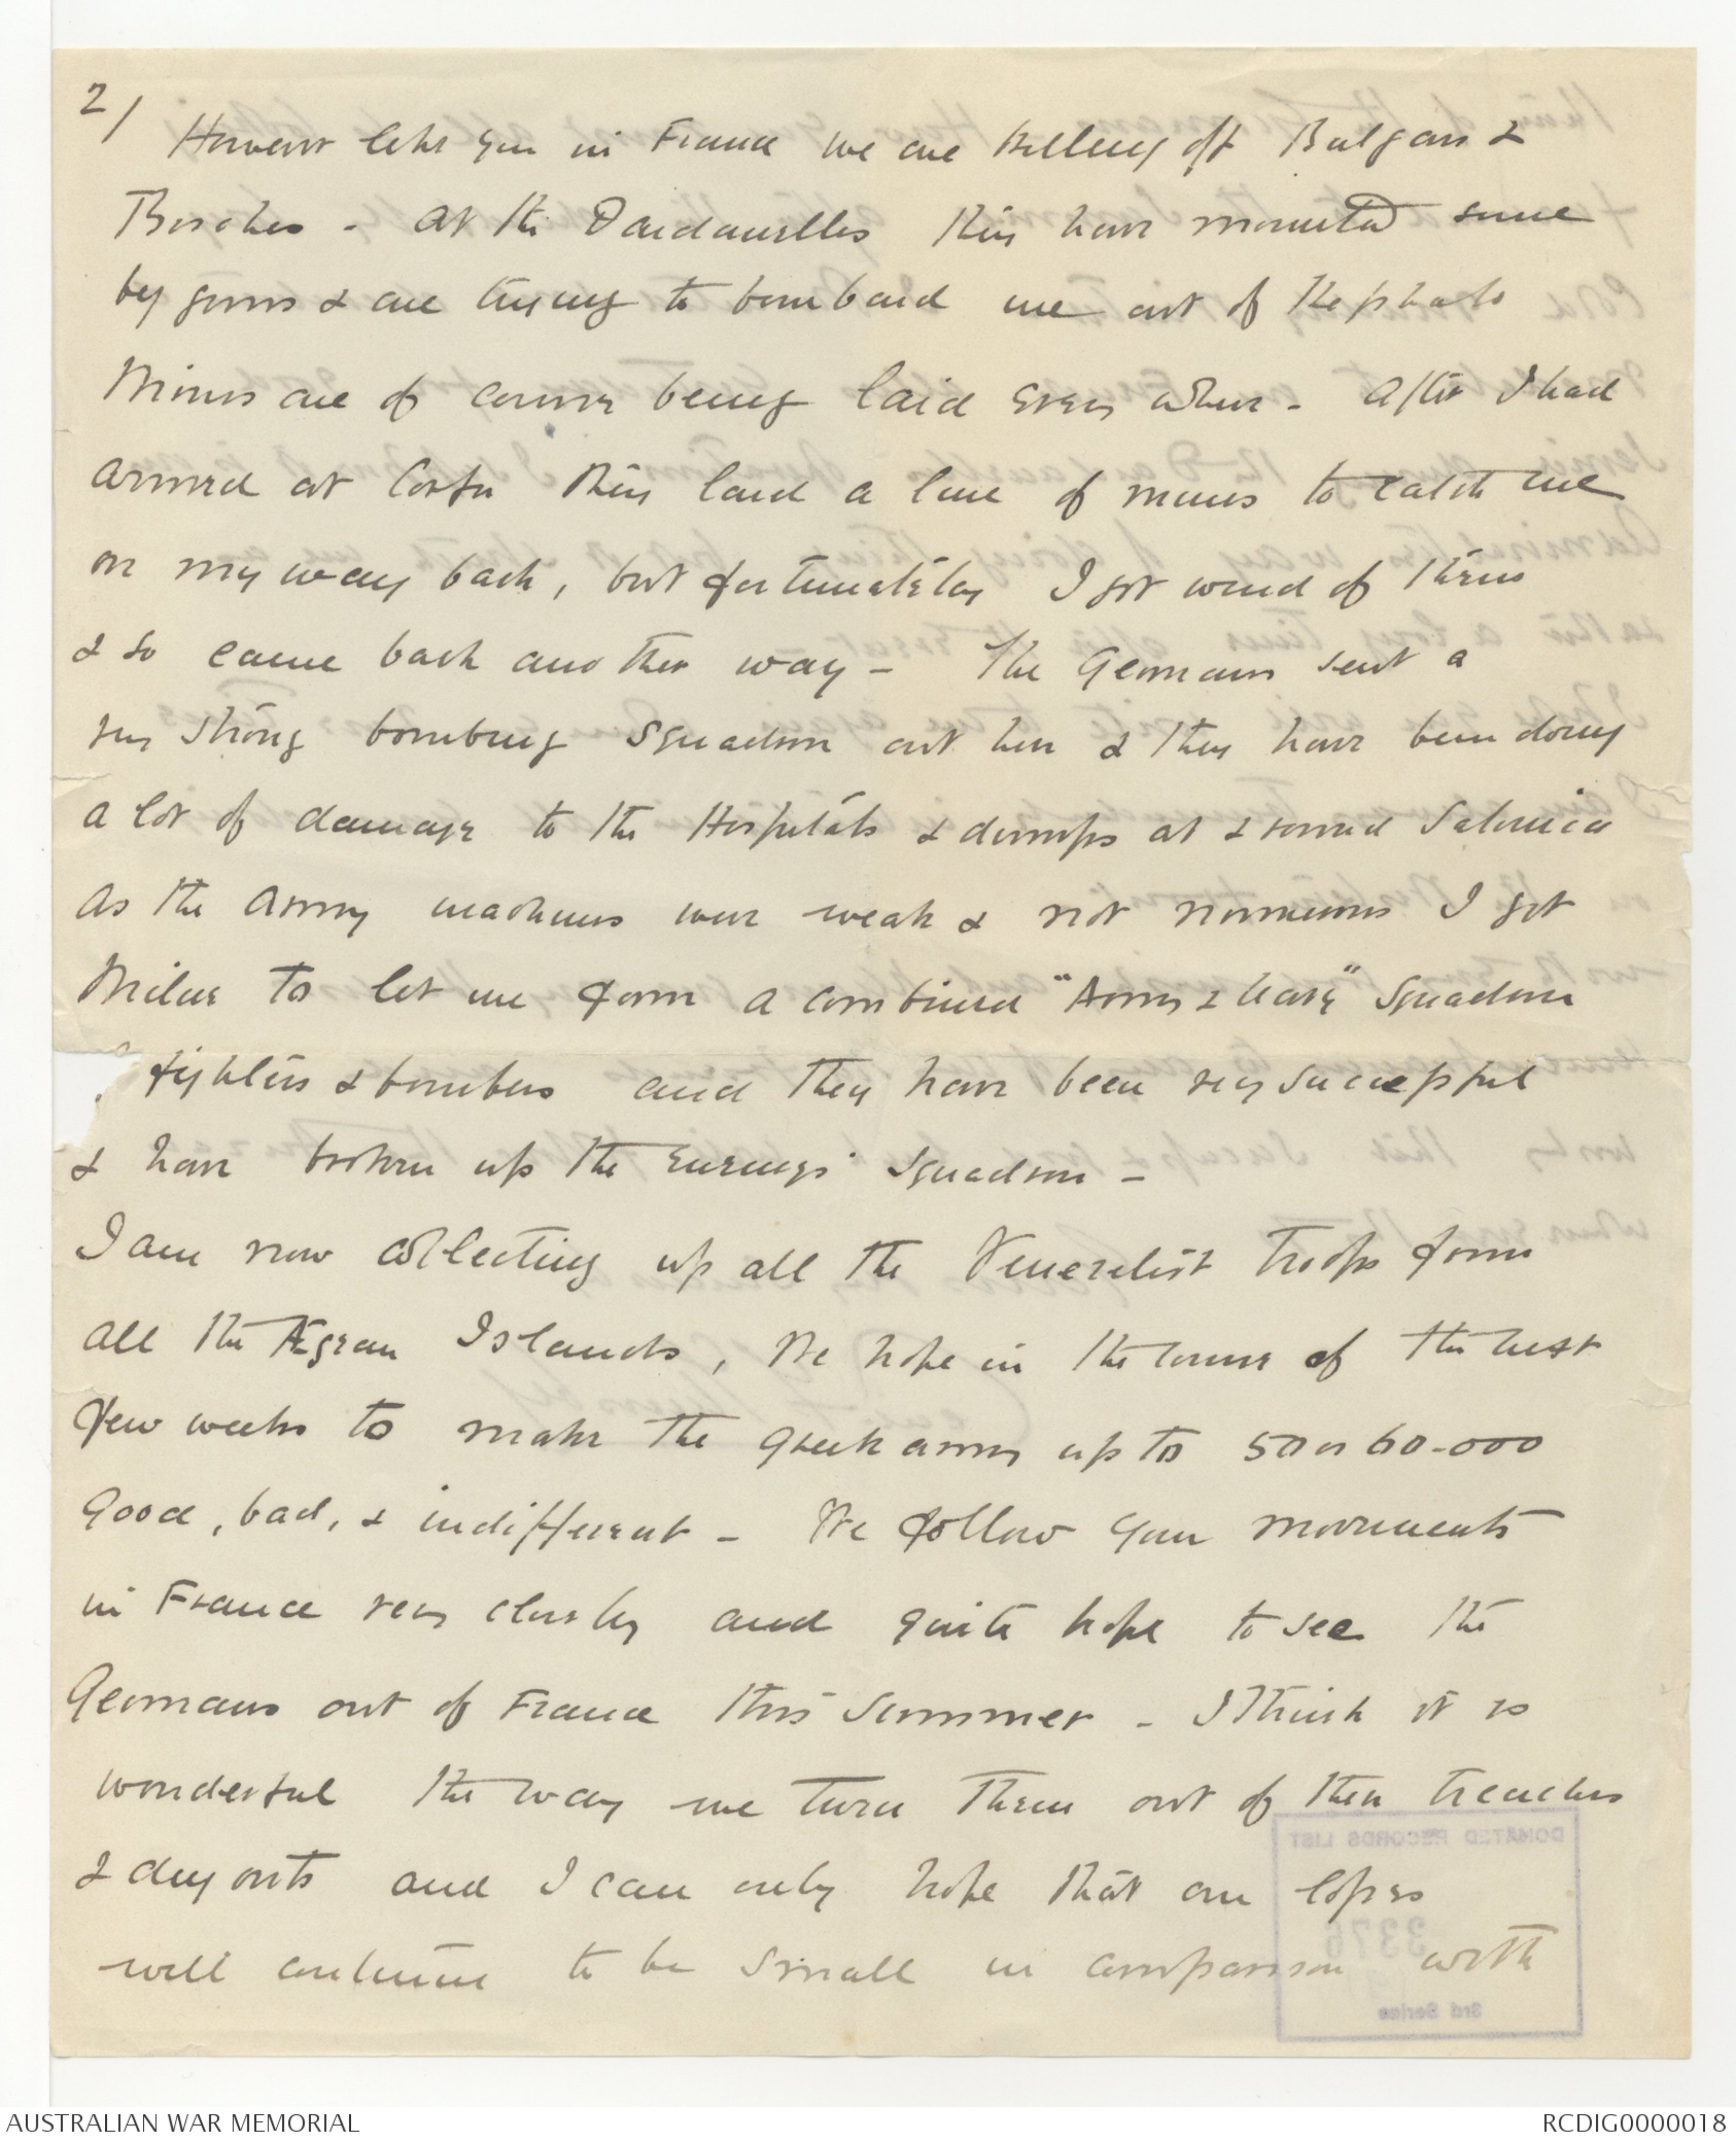 2/
However like you in France we are killing off Bulgars &
Bosches - At the Dardanelles they have mounted some
big guns & are trying to bombard me out of Kephalo
Mines are of course being laid every where - After I had
arrived at Corfu they laid a line of mines to catch me
on my way back, but fortunately I got wind of them
& so came back another way - The Germans sent a
very strong bombing squadron out here & they have been doing
a lot of damage to the Hospitals & dumps at & round Salonica
As the Army machines were weak & not numerous I got
Milne to let me form a combined "Army & Navy" Squadron
fighters & bombers and they have been very successful
& have broken up the Enemys' squadron -
I am now collecting up all the Venezelist troops from
all the Ægean Islands, We hope in the course of the next
few weeks to make the greek army up to 50 or 60-000
Good, bad, & indifferent - We follow your movements
in France very closely and quite hope to see the
Germans out of France this Summer - I think it is
wonderful the way we turn them out of their trenches
& dug outs and I can only hope that our losses
will continue to be small in comparison with
DONATED RECORDS LIST
3376
3rd Series
AUSTRALIAN WAR MEMORIAL
RCDIG0000018